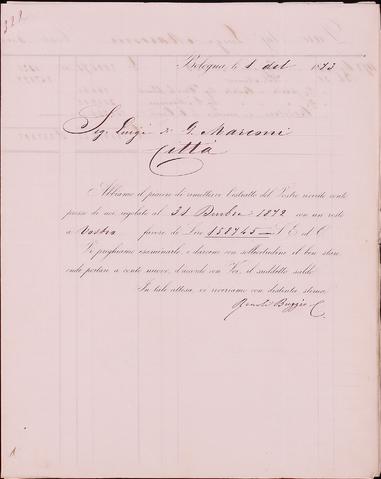 Bologna, le 1 1873
Sig. Luigi di G. Marconi
Città
Abbiamo il piacere di rimettervi l'estratto del Vostro conto
presso di noi regolato al 31 Dicembre 1872 con un resto
a Vostro favore di Lire 1587.45
Vi preghiamo esaminarlo, e darcene con sollecitudine il ben stare
onde portare a conto nuovo, d'accordo con Voi, il suddetto saldo
In tale attesa, vi riveriamo con distinta stima